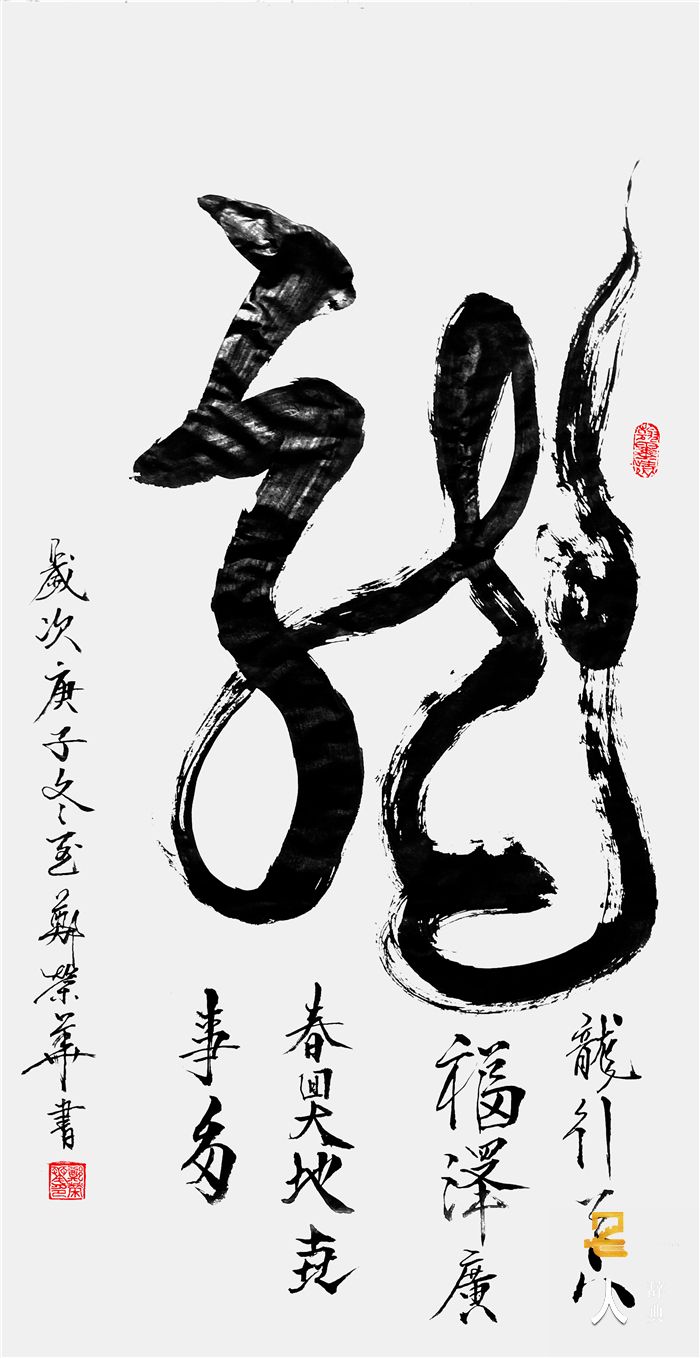 龍
龍行
福澤廣
春回大地喜
事多
歲次庚子冬至鄭榮華書
人
辞典